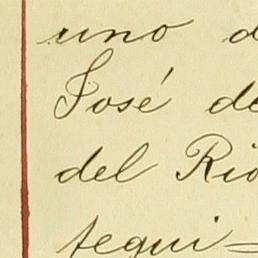 uno d
José de
del Río
tegui=